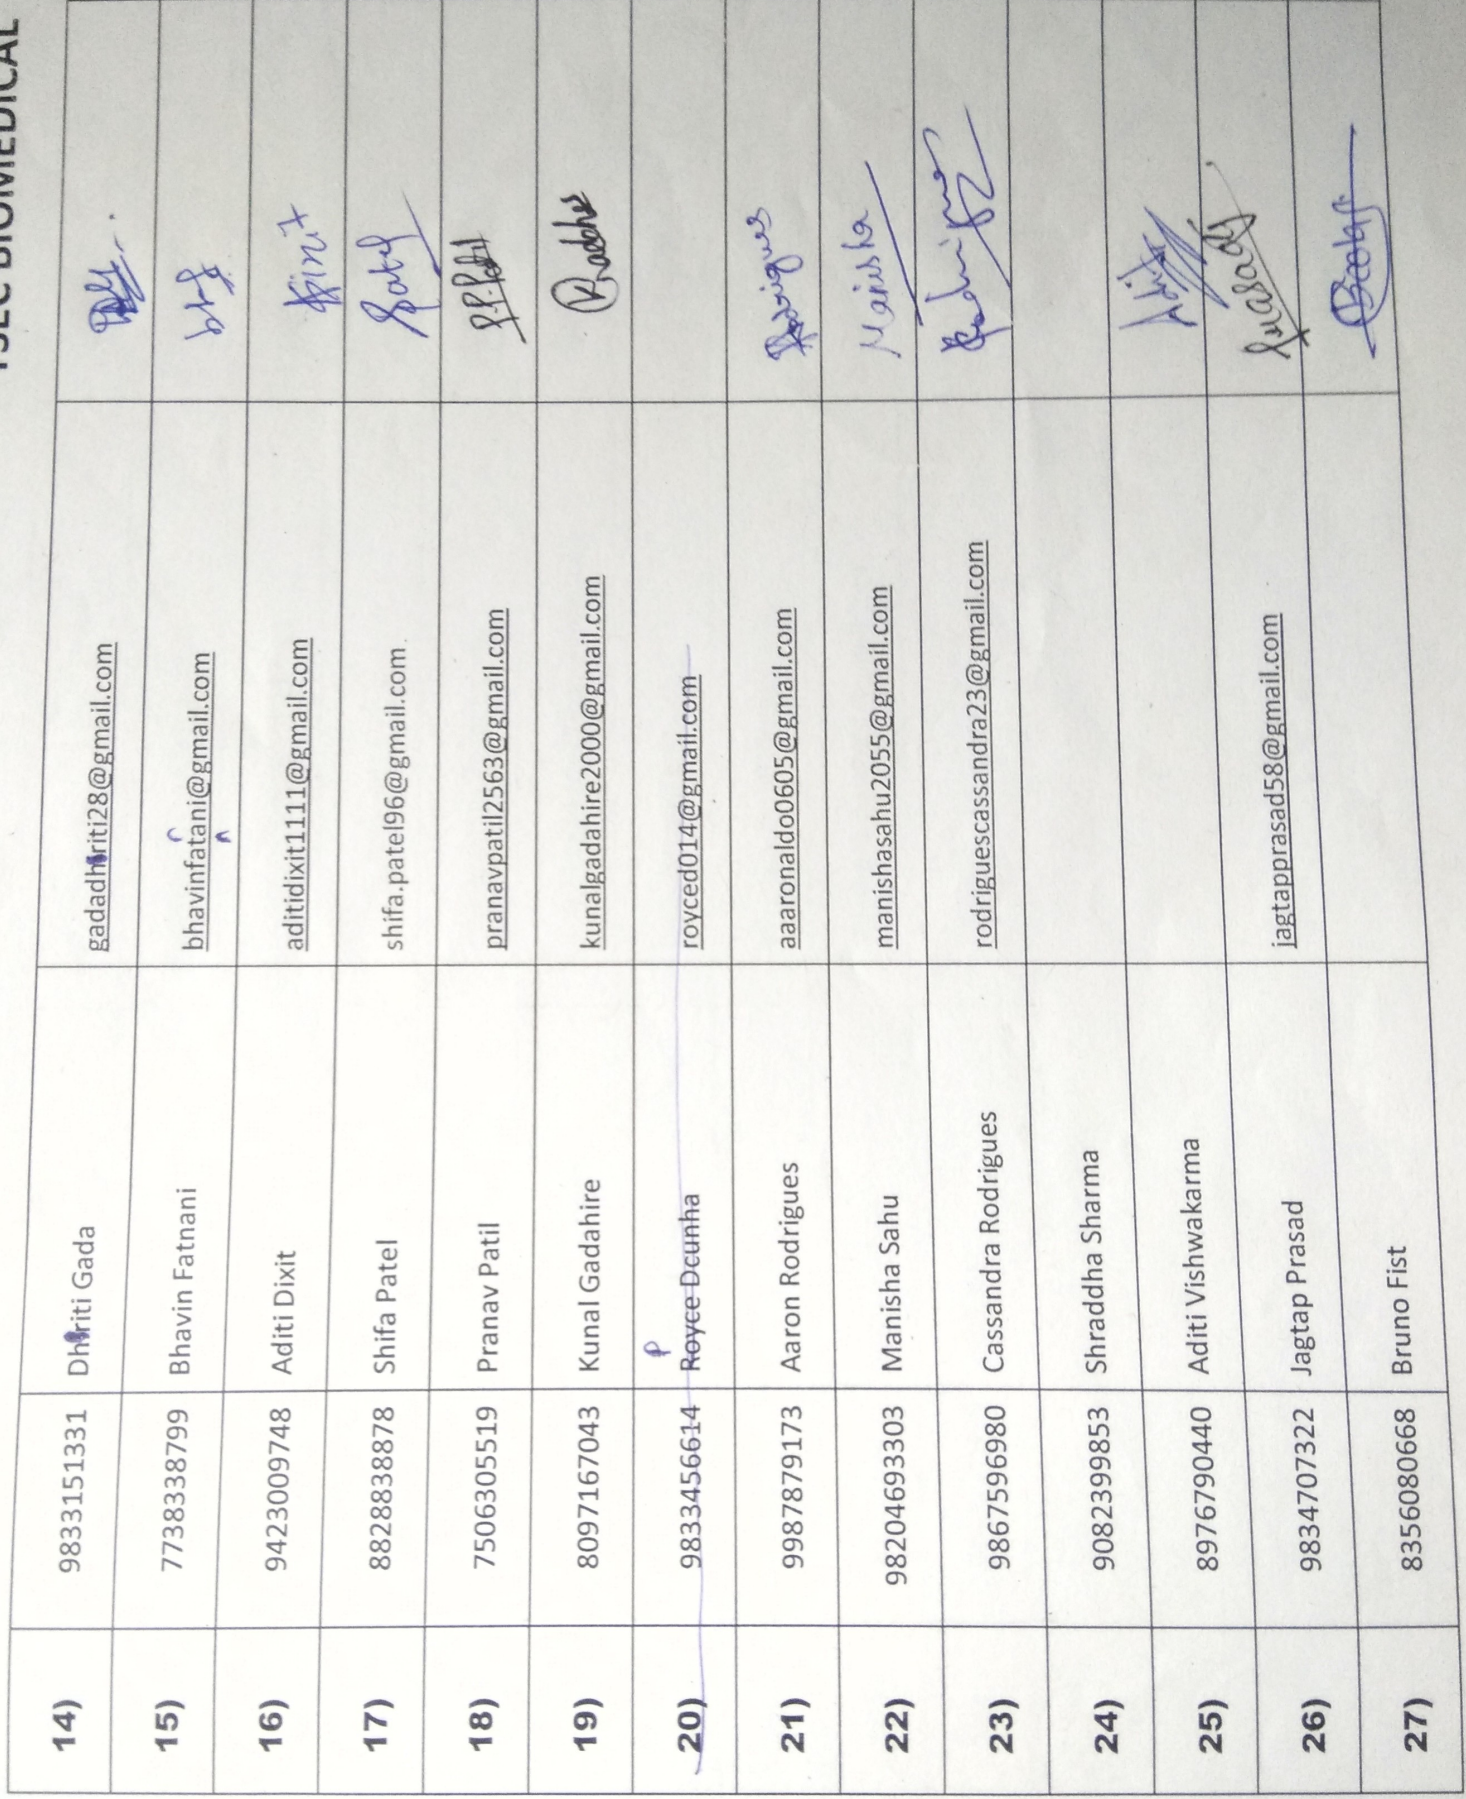 BIOMEDICAL
14) 9833151331 Dhriti Gada gadadhriti28@gmail.com
15) 7738338799 Bhavin Fatnani bhavinfatani@gmail.com n
16) 9423009748 Aditi Dixit aditidixit1111@gmail.com
17) 8828838878 Shifa Patel shifa.patel96@gmail.com
18) 7506305519 Pranav Patil pranavpatil2563@gmail.com P.P.Patil
19) 8097167043 Kunal Gadahire kunalgadahire2000@gmail.com
20) 9833456614 Royce Dcunha royced014@gmail.com
21) 9987879173 Aaron Rodrigues aaaronaldo0605@gmail.com Rodrigues
22) 98204693303 Manisha Sahu manishasahu2055@gmail.com Manisha
23) 9867596980 Cassandra Rodrigues rodriguescassandra23@gmail.com
24) 9082399853 Shraddha Sharma
25) 8976790440 Aditi Vishwakarma Aditi
26) 9834707322 Jagtap Prasad jagtapprasad58@gmail.com Prasad
27) 8356080668 Bruno Fist